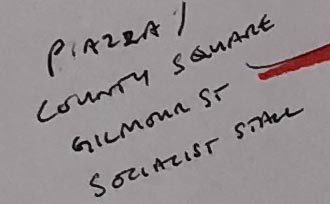 PIAZZA /
COUNTY SQUARE
GILMOUR ST
SOCIALIST STALL